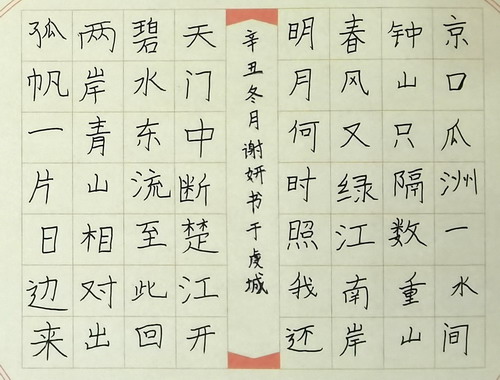 京口瓜洲一水间
钟山只隔数重山
春风又绿江南岸
明月何时照我还
辛丑冬月谢妍书于虔城
天门中断楚江开
碧水东流至此回
两岸青山相对出
孤帆一片日边来